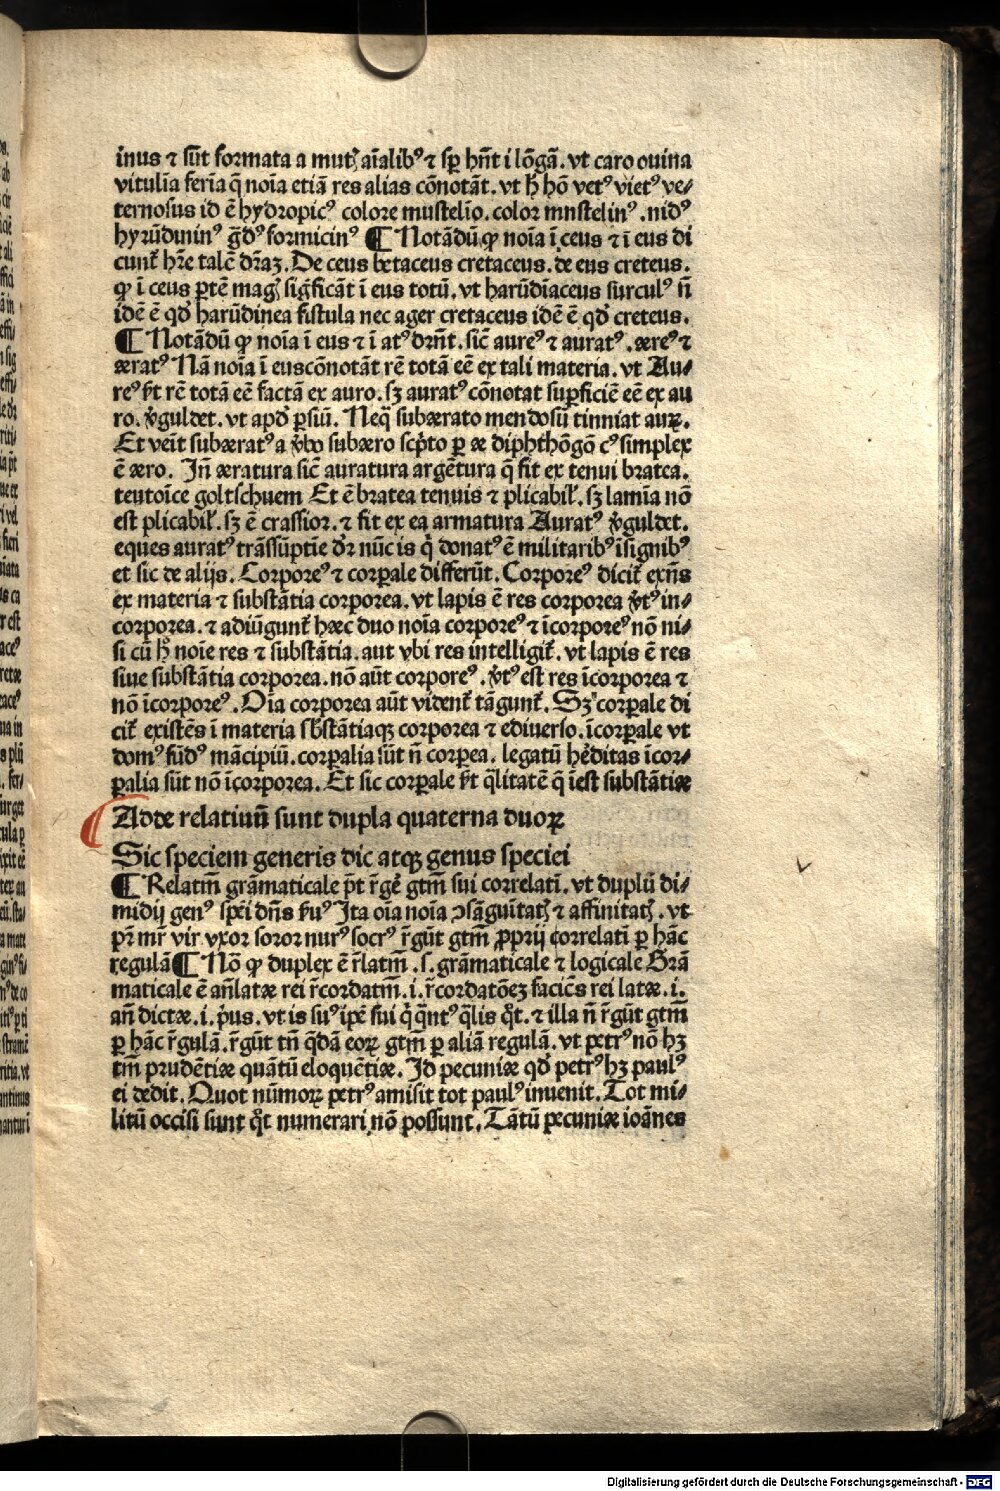 inus ⁊ sũt formata a mutꝭ aĩalibꝰ ⁊ sꝑ hñt i lõgã. vt caro ouina
vitulĩa ferĩa q̃ noĩa etiã res alias cõnotãt. vt h̃ hõ vetꝰ vietꝰ ve⸗
ternosus id ẽ hydropicꝰ colore mustelĩo. color mnstelinꝰ. nidꝰ
hyrũdininꝰ g̃dꝰ formicinꝰ ¶ Notãdũ ꝙ noĩa ĩ ceus ⁊ ĩ eus di
cunt̃ hr̃e talẽ dr̃aʒ. De ceus betaceus cretaceus. de eus creteus.
ꝙ ĩ ceus ꝑtẽ magꝭ sig̃ficãt ĩ eus totũ. vt harũdiaceus surculꝰ ñ
idẽ ẽ qd̃ harũdinea fistula nec ager cretaceus idẽ ẽ qd̃ creteus.
¶ Notãdũ ꝙ noĩa ĩ eus ⁊ ĩ atꝰ dr̃nt. sic̃ aureꝰ ⁊ auratꝰ. æreꝰ ⁊
æratꝰ Nã noĩa ĩ euscõnotãt rẽ totã eẽ ex tali materia. vt Au⸗
reꝰ ẜt rẽ totã eẽ factã ex auro. sʒ auratꝰ cõnotat suꝑficiẽ eẽ ex au
ro. v̾guldet. vt apd̃ ꝑsiũ. Neq̃ subærato mendosũ tinniat auꝝ.
Et veñt subæratꝰ a v̾bo subæro sc̃pto ꝑ æ diphthõgõ cꝰ simplex
ẽ æro. Jñ æratura sic̃ auratura argẽtura q̃ fit ex tenui bratea.
teutoĩce goltschuem Et ẽ bratea tenuis ⁊ plicabil̃. sʒ lamĩa nõ
est plicabil̃. sʒ ẽ crassior. ⁊ fit ex ea armatura Auratꝰ v̾guldet.
eques auratꝰ trãssũptĩe dr̃ nũc is q̃ donatꝰ ẽ militaribꝰ ĩsignibꝰ
et sic de alijs. Corporeꝰ ⁊ corꝑale differũt. Corporeꝰ dicit̃ exñs
ex materia ⁊ substãtia corporea. vt lapis ẽ res corporea v̾tꝰ in⸗
corporea. ⁊ adiũgunt̃ hæc duo noĩa corporeꝰ ⁊ ĩcorporeꝰ nõ ni⸗
si cũ h̃ noĩe res ⁊ substãtia. aut vbi res intelligit̃. vt lapis ẽ res
siue substãtia corporea. nõ aũt corporeꝰ. v̾tꝰ est res ĩcorporea ⁊
nõ ĩcorporeꝰ. Oĩa corporea aũt vident̃ tãgunt̃. Sʒ corꝑale di
cit̃ existẽs ĩ materia sb̃stãtiaqʒ corporea ⁊ ediuerso. ĩcorꝑale vt
domꝰ fũdꝰ mãcipiũ. corꝑalia sũt ñ corꝑea. legatũ he̾ditas ĩcor⸗
ꝑalia sũt nõ ĩcorporea. Et sic corꝑale ẜt q̃litatẽ q̃ ĩest substãtiæ
Adde relatiuũ sunt dupla quaterna duoꝝ
Sic speciem generis dic atqʒ genus speciei
¶ Relatm̃ grãmaticale p̃t r̃gẽ gtm̃ sui correlati. vt duplũ di⸗
midij genꝰ sp̃ei dñs ẜuꝰ Jta oĩa noĩa ↄsãguĩtatꝭ ⁊ affinitatꝭ. vt
pr̃ mr̃ vir vxor soror nurꝰ socrꝰ r̃gũt gtm̃ ꝓprij correlati ꝑ hãc
regulã ¶ Nõ ꝙ duplex ẽ r̃latm̃. s. grãmaticale ⁊ logicale Grã
maticale ẽ añlatæ rei r̃cordatm̃. i. r̃cordatõeʒ faciẽs rei latæ. i.
añ dictæ. i. p̾us. vt is suꝰ ip̃e sui q̃ q̃ntꝰ q̃lis q̃t. ⁊ illa ñ r̃gũt gtm̃
ꝑ hãc r̃gulã. r̃gũt tñ q̃dã eoꝝ gtm̃ ꝑ aliã regulã. vt petrꝰ nõ hʒ
tm̃ prudẽtiæ quãtũ eloquẽtiæ. Jd pecuniæ qd̃ petrꝰ hʒ paulꝰ
ei dedit. Quot nũmoꝝ petrꝰ amisit tot paulꝰ inuenit. Tot mi⸗
litũ occisi sunt q̃t numerari nõ possunt. Tãtũ pecuniæ ioãnes
Digitalisierung gefördert durch die Deutsche Forschungsgemeinschaft - DFG